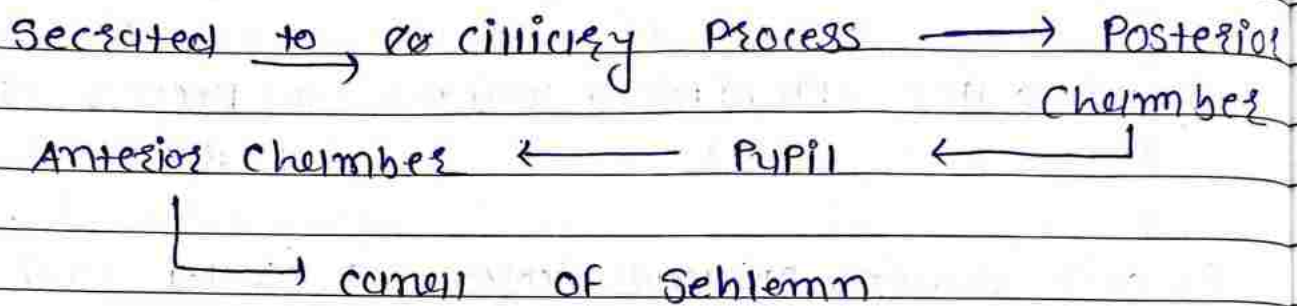 Secrated to → cilliary Process → Posterior
Chamber
Anterior Chamber ← Pupil ←
→ canall of Sehlemn